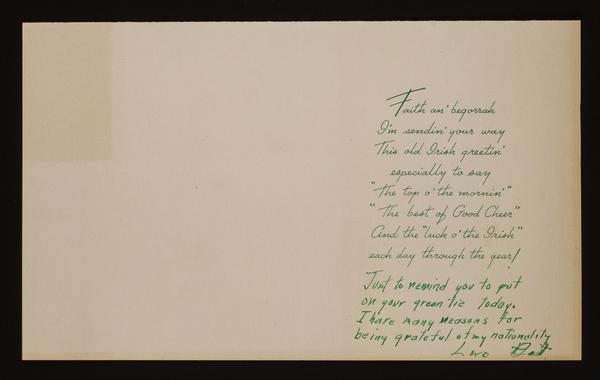 Faith an' begorrah
I'm sendin' your way
This old Irish greetin'
especially to say
"The top o' the mornin'"
"The best of Good Cheer"
And the "luck o' the Irish"
each day through the year!
Just to remind you to put
on your green tie today.
I have many reasons for
being grateful of my nationality